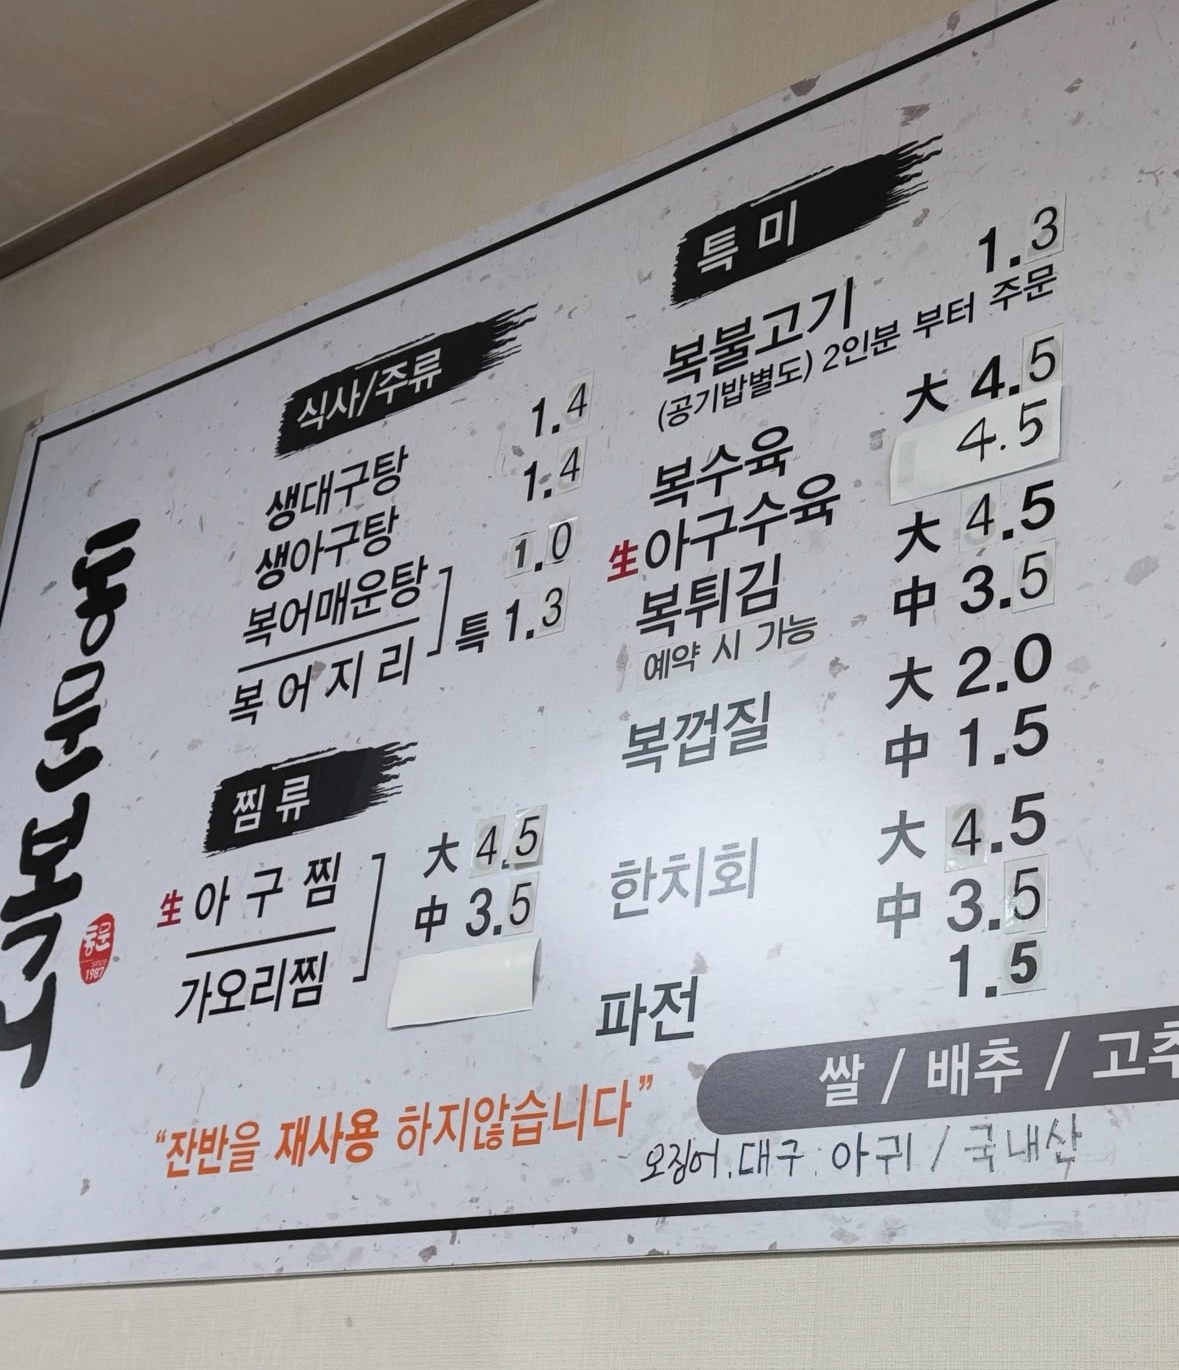 동문복
동문
since
1987
식사/주류
생대구탕 1.4
생아구탕 1.4
복어매운탕 1.0
복어지리 특 1.3
찜류
生 아구찜 大 4.5
가오리찜 中 3.5
특미
복불고기 1.3
(공기밥별도) 2인분 부터 주문
복수육 大 4.5
生 아구수육 4.5
복튀김 大 4.5
예약 시 가능 中 3.5
복껍질 大 2.0
中 1.5
한치회 大 4.5
中 3.5
파전 1.5
“잔반을 재사용 하지않습니다”
쌀 / 배추 / 고추
오징어, 대구, 아귀 / 국내산